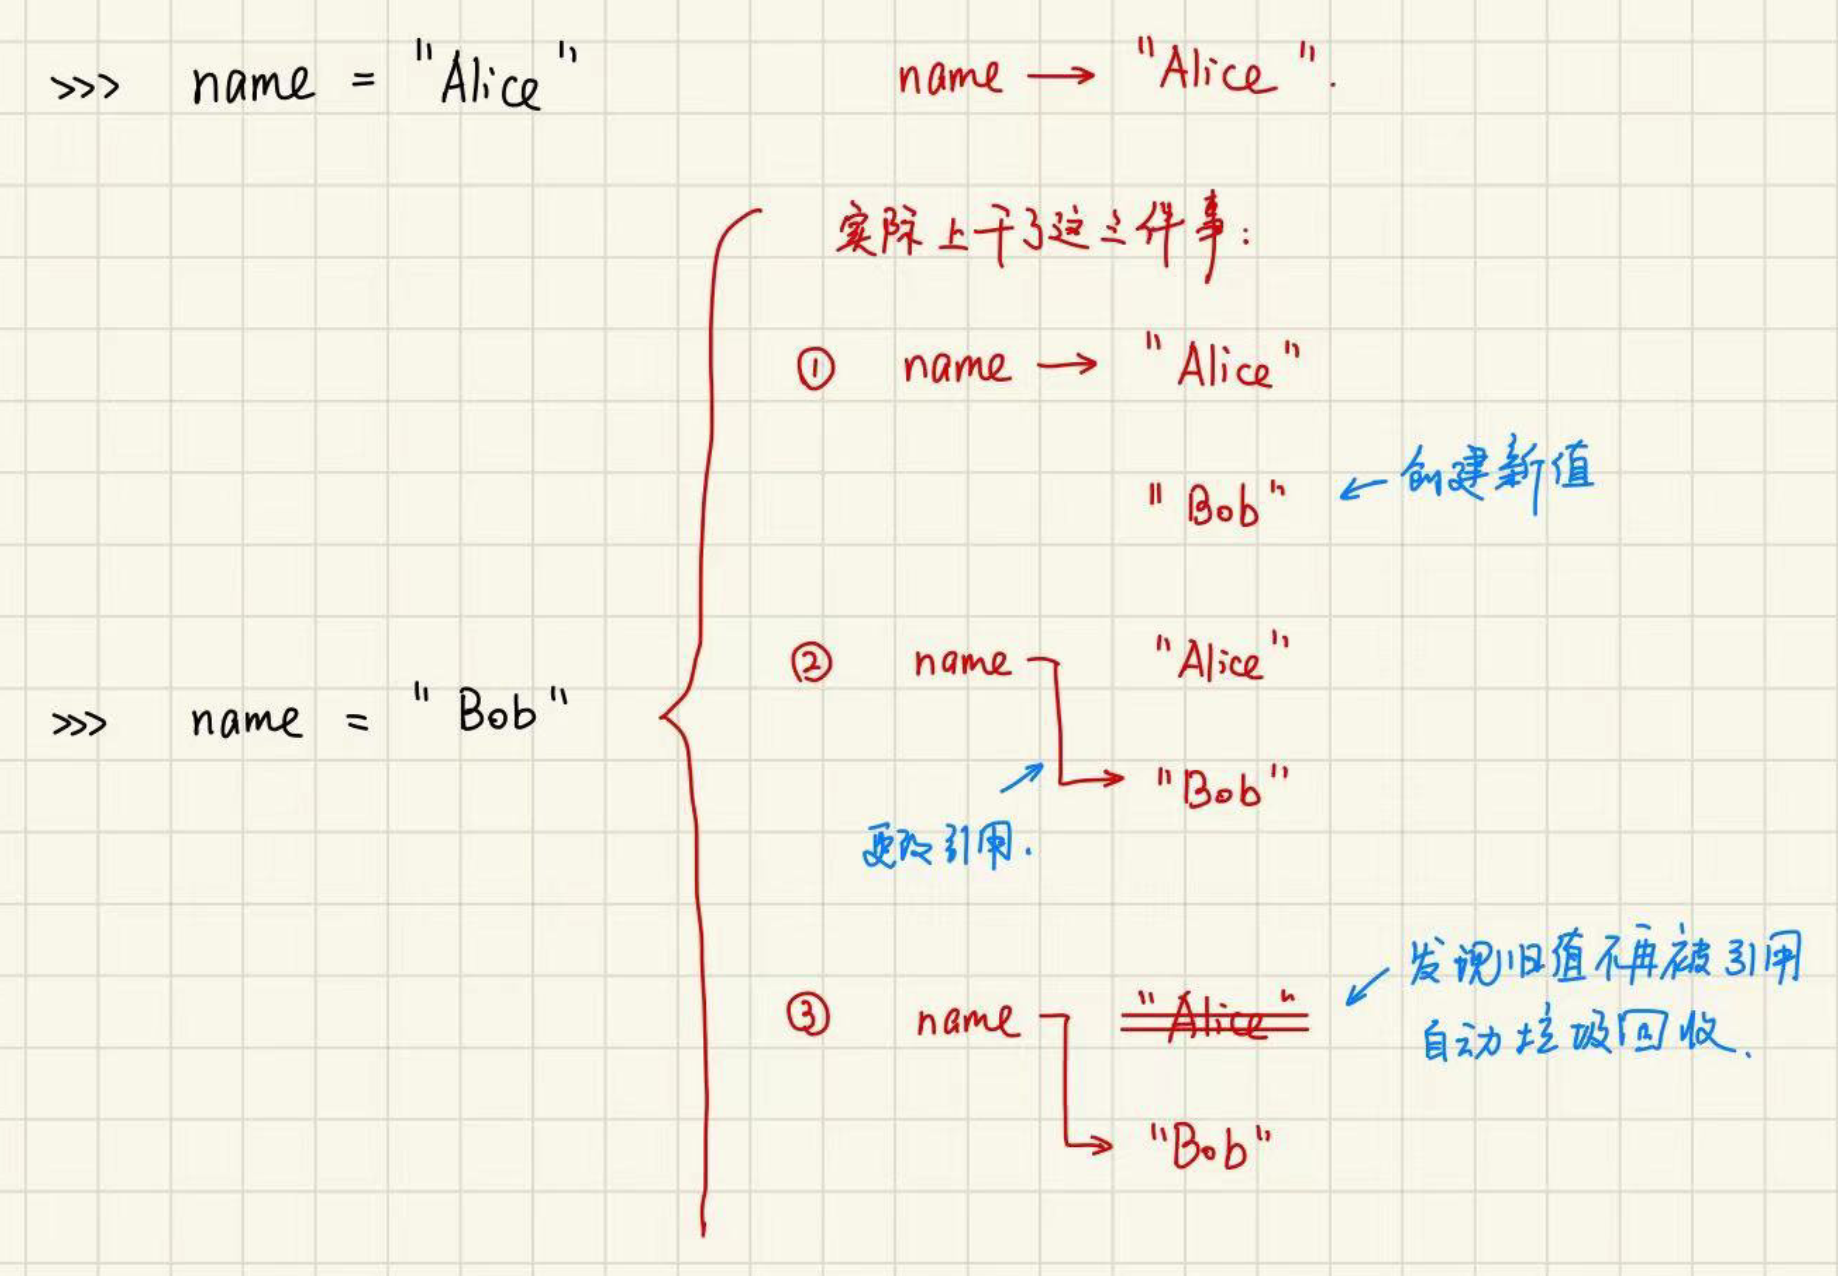 >>> name = "Alice"
name → "Alice".
实际上干了这三件事:
① name → "Alice"
"Bob" ← 创建新值
>>> name = "Bob"
② name "Alice"
→ "Bob"
更改引用.
③ name "Alice"
发现旧值不再被引用
自动垃圾回收.
→ "Bob"